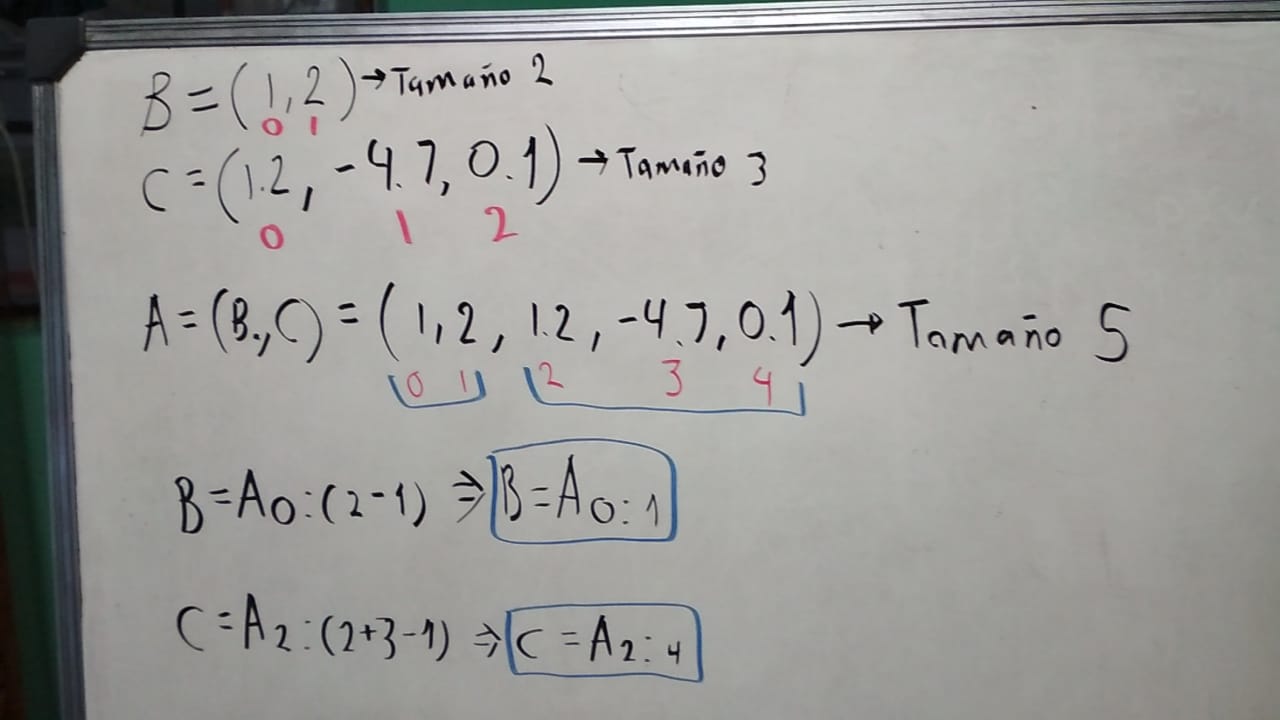 B = (1, 2) → Tamaño 2
0 1
C = (1.2, -4.7, 0.1) → Tamaño 3
0 1 2
A = (B, C) = (1, 2, 1.2, -4.7, 0.1) → Tamaño 5
0 1 2 3 4
B = A0:(2-1) ⇒ B = A0:1
C = A2:(2+3-1) ⇒ C = A2:4